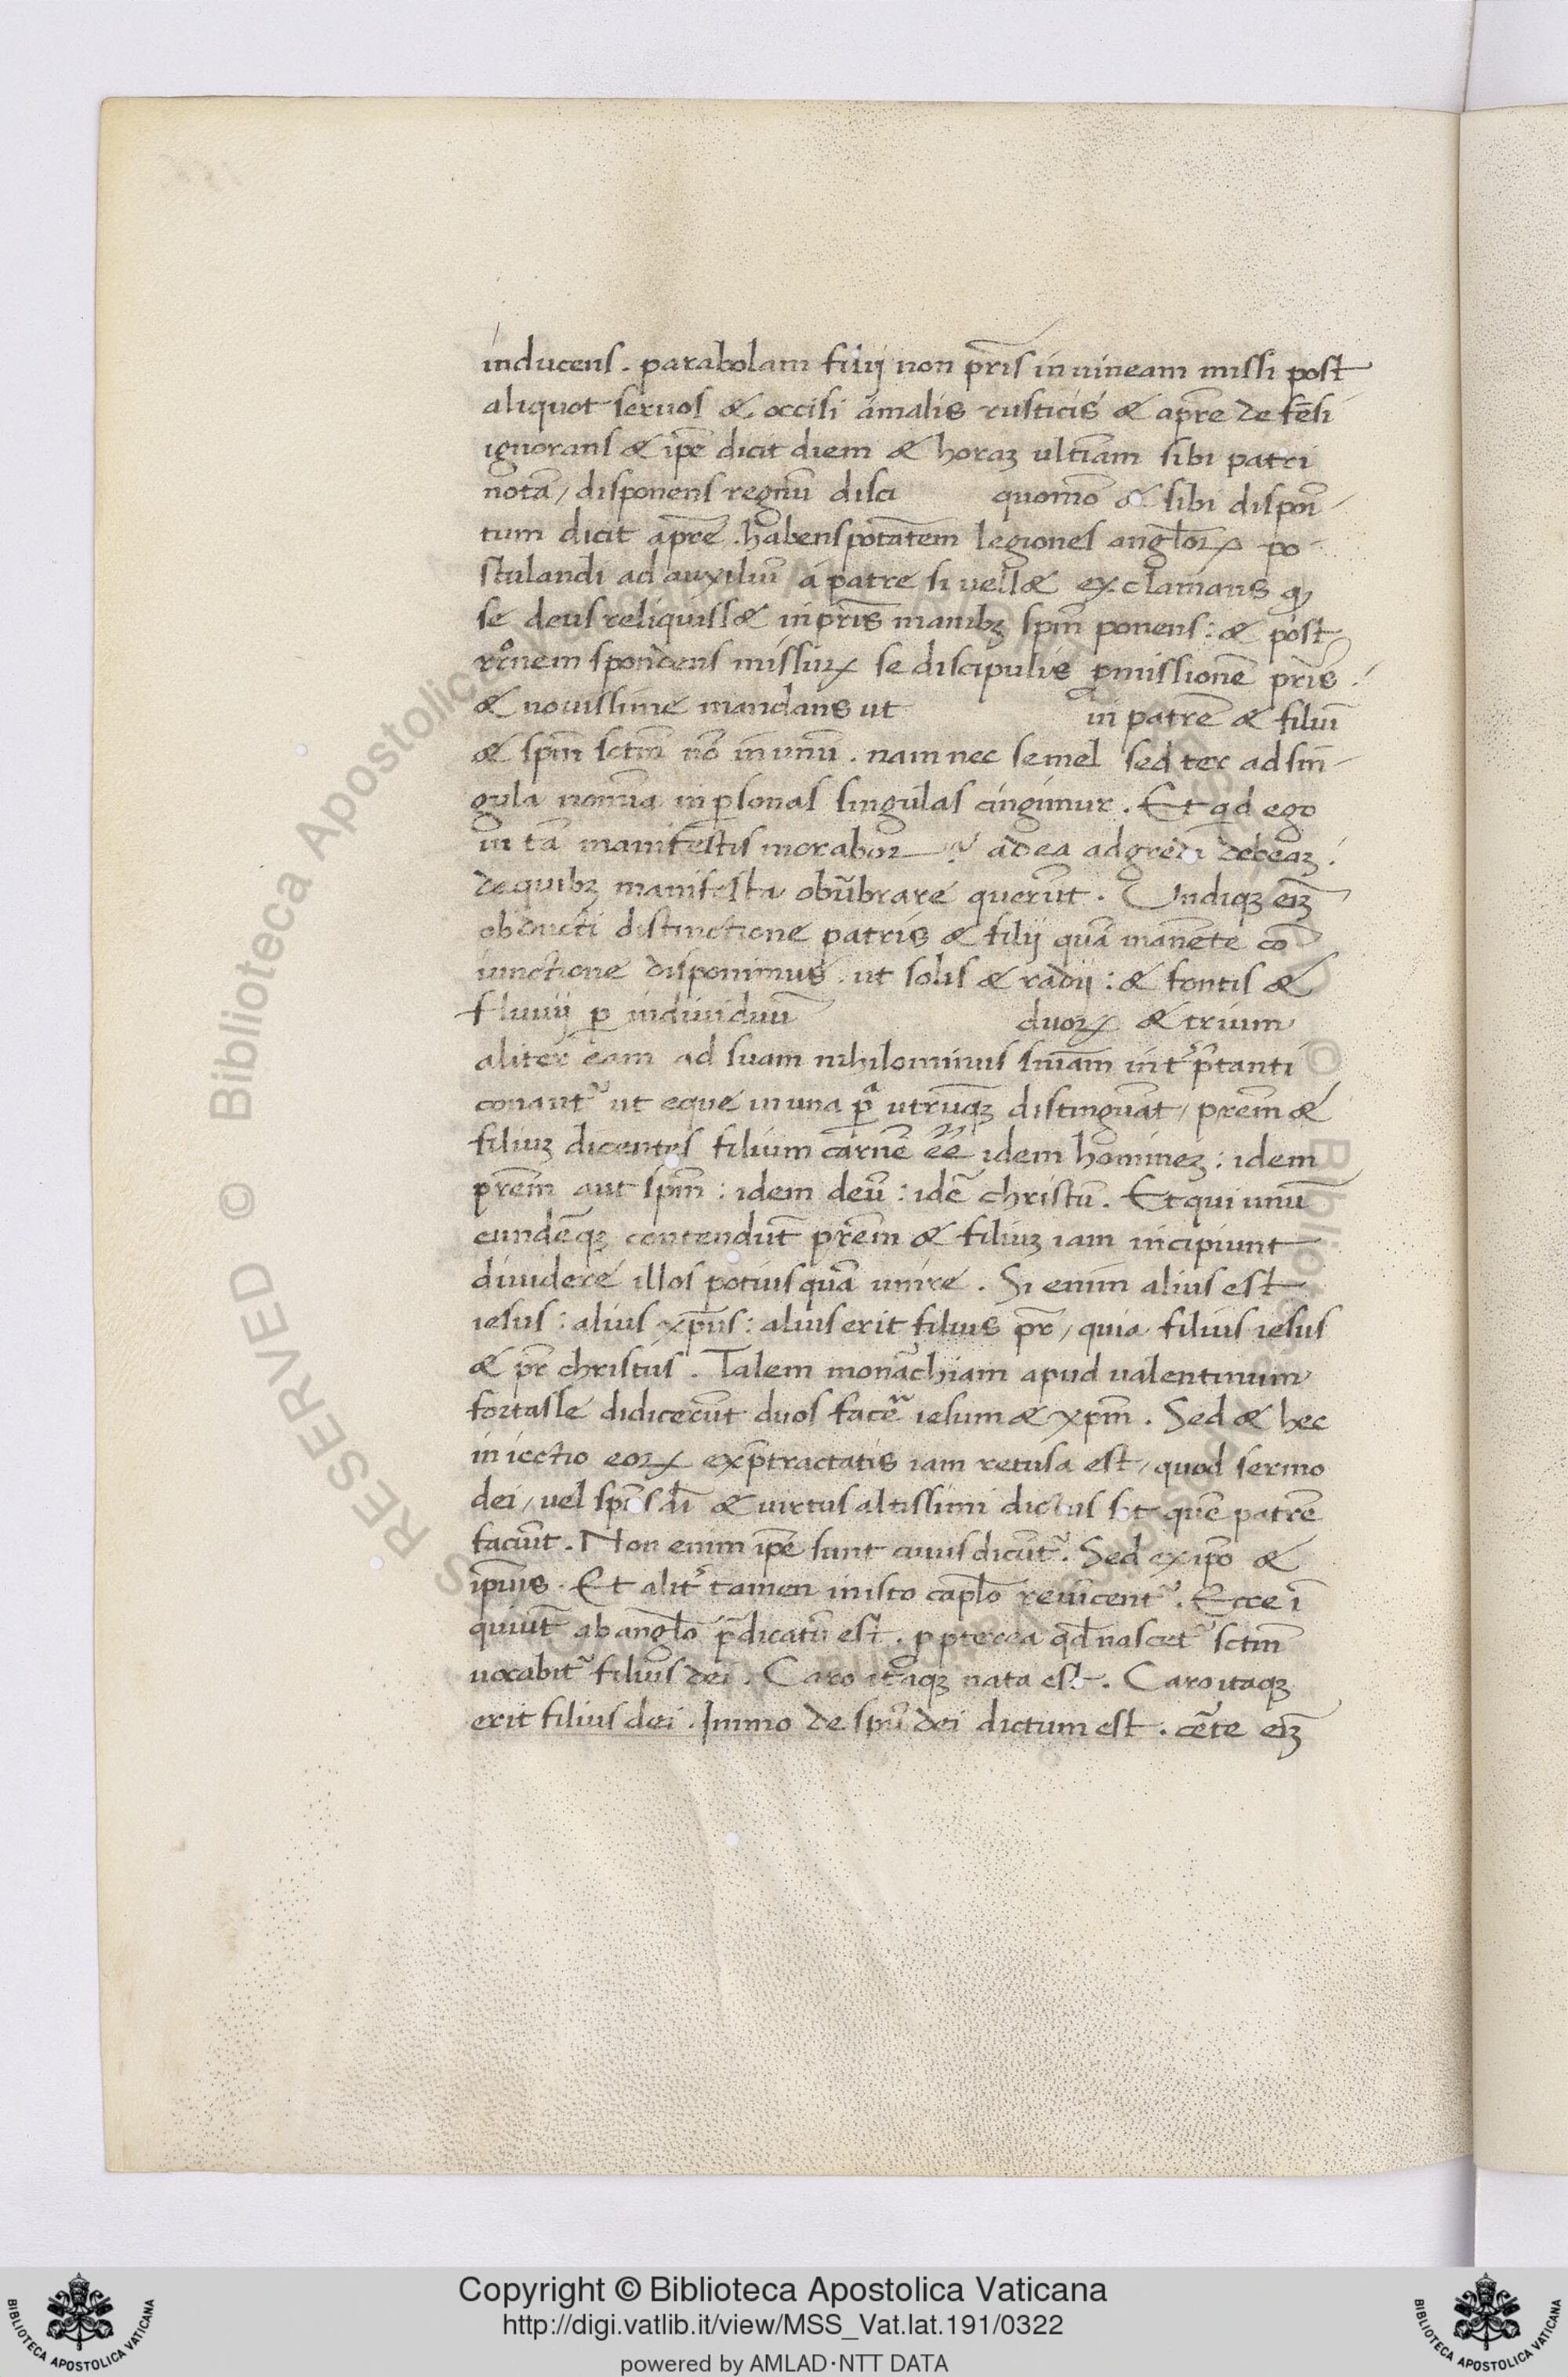 inducens . parabolam filij non pr̃is in uineam missi post
aliquot seruos & occisi amalis rusticis & apr̃e defẽsi
ignorans & ip̃e dicit diem & horaꝫ ultĩam sibi patri
notã / disponens regnũ disci quomõ & sibi dispoi
tum dicit apr̃e . habens potãtem legiones angl̃oꝝ po
stulandi ad auxiliũ a patre si uell& exclamans ꝙ
se deus reliquiss& in pr̃is manibꝫ sp̃m ponens : & post
missuꝝ se discipulis ꝓmissionẽ pr̃is .
& nouissime mandans ut in patrẽ & filiũ
& sp̃m sctm̃ nõ in unũ . nam nec semel sed ter ad sin
gula nom̃ia in ꝑsonas singulas cingimur . Et qd ego
in tã manifestis morabor ? ad ea adgredi debeaꝫ .
de quibꝫ manifesta obũbrare querũt . Undiqꝫ eiꝫ
obducti distinctione patris & filij quã manẽte cõ
iunctione disponimus . ut solis & radij : & fontis &
fluuij ꝑ indiuiduũ duoꝝ & trium
aliter eam ad suam nihilominus sñiam int̃p̃tanti
conant᷑ ut eque in una ꝑᷓ utrũqꝫ distinguãt / prẽm &
filiuꝫ dicentes filium carnẽ eẽ idem homineꝫ : idem
prẽm aut sp̃m : idem deũ : idẽ christũ . Et qui unũ
eundẽqꝫ contendũt prẽm & filiuꝫ iam incipiunt
diuidere illos potius quã unire . Si enim alius est
iesus : alius xp̃us : alius erit filius pr̃ , quia filius iesus
& pr̃ christus . Talem monarchiam apud ualentinum
fortasse didicerũt duos facẽ iesum & xp̃m . Sed & hec
iniectio eoꝝ exp̃tractatis iam retusa est / quod sermo
dei / uel sp̃s dĩ & uirtus altissimi dictus sit quẽ patrẽ
faciũt . Non enim ip̃e sunt cuius dicũt᷑ . Sed ex ip̃o &
ip̃ius . Et alit᷑ tamen in isto capl̃o reuĩcent᷑ . Ecce ĩ
quiũt ab angl̃o p̃dicatũ est . ꝓpterea qd̃ nascet᷑ sctm̃
uocabit᷑ filius dei . Caro itaqꝫ nata est . Caro itaqꝫ
erit filius dei . Immo de sp̃u dei dictum est . cẽte eiꝫ
Copyright © Biblioteca Apostolica Vaticana
http://digi.vatlib.it/view/MSS_Vat.lat.191/0322
powered by AMLAD·NTT DATA